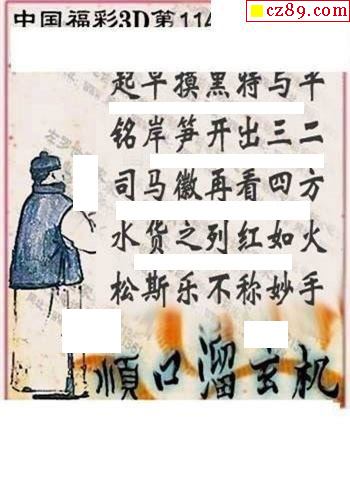 cz89.com
中国福彩3D第114
起早摸黑特与平
铭岸笋开出三二
司马徽再看四方
水货之列红如火
松斯乐不称妙手
顺口溜玄机